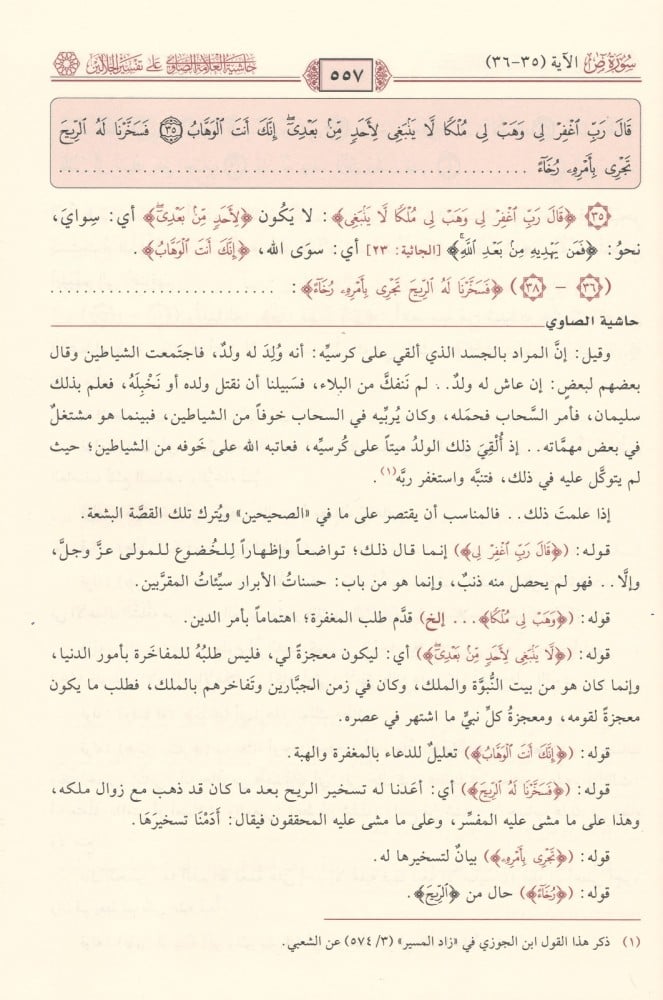 سُورَةُ صٓ الآية (٣٥-٣٦)
٥٥٧
حَاشِيَةُ العَلَّامَةِ الصَّاوِي عَلَى تَفْسِيرِ الجَلَالَيْنِ
قَالَ رَبِّ ٱغْفِرْ لِى وَهَبْ لِى مُلْكًا لَّا يَنۢبَغِى لِأَحَدٍ مِّنۢ بَعْدِىٓ ۖ إِنَّكَ أَنتَ ٱلْوَهَّابُ ٣٥ فَسَخَّرْنَا لَهُ ٱلرِّيحَ
تَجْرِى بِأَمْرِهِۦ رُخَآءً ........................................
٣٥ ﴿قَالَ رَبِّ ٱغْفِرْ لِى وَهَبْ لِى مُلْكًا لَّا يَنۢبَغِى﴾: لا يَكُون ﴿لِأَحَدٍ مِّنۢ بَعْدِىٓ ۖ﴾ أي: سِوايَ،
نحوُ: ﴿فَمَن يَهْدِيهِ مِنۢ بَعْدِ ٱللَّهِ﴾ [الجاثية: ٢٣] أي: سوَى الله، ﴿إِنَّكَ أَنتَ ٱلْوَهَّابُ﴾.
(٣٦ - ٣٨) ﴿فَسَخَّرْنَا لَهُ ٱلرِّيحَ تَجْرِى بِأَمْرِهِۦ رُخَآءً﴾: ........................
حاشية الصاوي
وقيل: إنَّ المراد بالجسد الذي ألقي على كرسيِّه: أنه وُلِدَ له ولدٌ، فاجتَمعت الشياطين وقال
بعضهم لبعضٍ: إن عاش له ولدٌ.. لم نَنفكَّ من البلاء، فسَبيلنا أن نقتل ولده أو نَخْبِلَهُ، فعلم بذلك
سليمان، فأمر السَّحاب فحمَله، وكان يُربِّيه في السحاب خوفاً من الشياطين، فبينما هو مشتغلٌ
في بعض مهمَّاته.. إذ أُلْقِيَ ذلك الولدُ ميتاً على كُرسيِّه، فعاتبه الله على خَوفه من الشياطين؛ حيث
لم يتوكَّل عليه في ذلك، فتنبَّه واستغفر ربَّه(١).
إذا علمتَ ذلك.. فالمناسب أن يقتصر على ما في «الصحيحين» ويُترك تلك القصَّة البشعة.
قوله: (﴿قَالَ رَبِّ ٱغْفِرْ لِى﴾) إنما قال ذلك؛ تواضعاً وإظهاراً لِلخُضوع للمولى عزَّ وجلَّ،
وإلَّا.. فهو لم يحصل منه ذنبٌ، وإنما هو من باب: حسناتُ الأبرار سيِّئاتُ المقرَّبين.
قوله: (﴿وَهَبْ لِى مُلْكًا﴾... إلخ) قدَّم طلب المغفرة؛ اهتماماً بأمور الدين.
قوله: (﴿لَّا يَنۢبَغِى لِأَحَدٍ مِّنۢ بَعْدِىٓ ۖ﴾) أي: ليكون معجزةً لي، فليس طلبُهُ للمفاخَرة بأمور الدنيا،
وإنما كان هو من بيت النُّبوَّة والملك، وكان في زمن الجبَّارين وتَفاخرهم بالملك، فطلب ما يكون
معجزةً لقومه، ومعجزةُ كلِّ نبيٍّ ما اشتهر في عصره.
قوله: (﴿إِنَّكَ أَنتَ ٱلْوَهَّابُ﴾) تعليلٌ للدعاء بالمغفرة والهبة.
قوله: (﴿فَسَخَّرْنَا لَهُ ٱلرِّيحَ﴾) أي: أعَدنا له تسخير الريح بعد ما كان قد ذهب مع زوال ملكه،
وهذا على ما مشى عليه المفسِّر، وعلى ما مشى عليه المحققون فيقال: أَدَمْنَا تسخيرَهَا.
قوله: (﴿تَجْرِى بِأَمْرِهِۦ﴾) بيانٌ لتسخيرها له.
قوله: (﴿رُخَآءً﴾) حال من ﴿ٱلرِّيحَ﴾.
(١) ذكر هذا القول ابن الجوزي في «زاد المسير» (٣/ ٥٧٤) عن الشعبي.